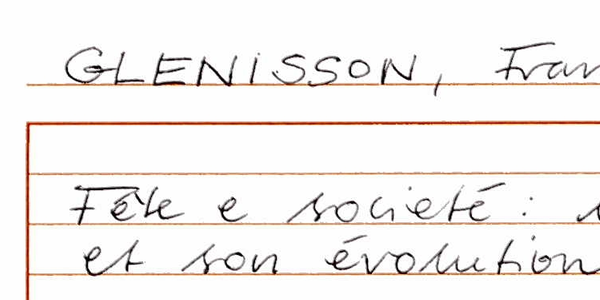 GLENISSON, Fran
Fête e societé :
et son évolution